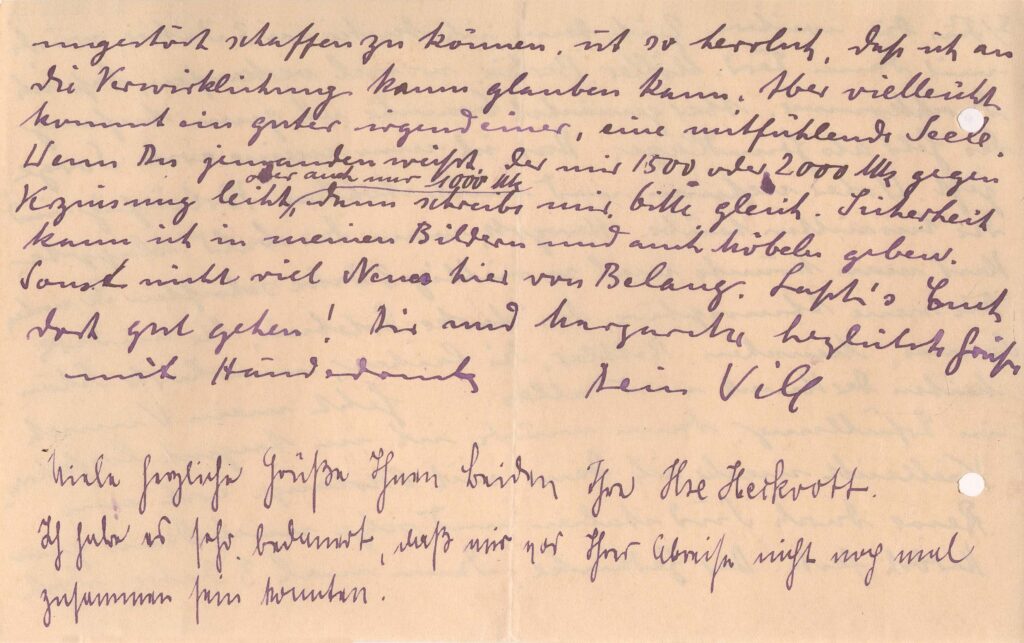 ungestört schaffen zu können, ist so herrlich, daß ich an
die Verwirklichung kaum glauben kann. Aber vielleicht
kommt ein guter irgend einer, eine mitfühlende Seele.
Wenn Du jemanden weißt, der mir 1500 oder 2000 Mk gegen
oder auch nur 1000 Mk
Verzinsung leiht, dann schreibe mir bitte gleich. Sicherheit
kann ich in meinen Bildern und auch Möbeln geben.
Sonst nicht viel Neues hier von Belang. Laßt's Euch
dort gut gehen! Dir und Margarete herzlichste Grüße
mit Händedruck Dein Will
Viele herzliche Grüße Ihnen beiden Ihre Ilse Heckrott.
Ich habe es sehr bedauert, daß wir vor Ihrer Abreise nicht noch mal
zusammen sein konnten.